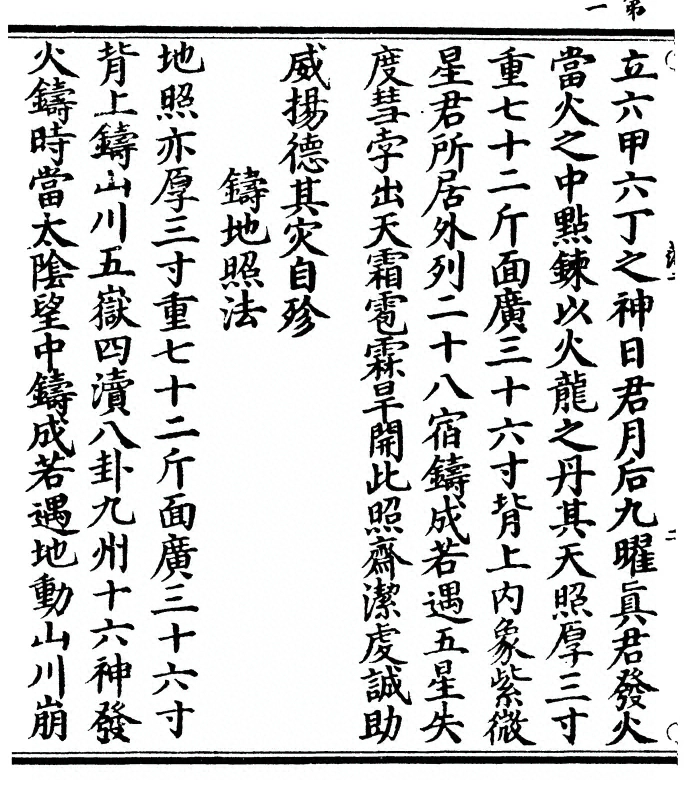 第一
二
立六甲六丁之神日君月后九曜眞君發火
當火之中點鍊以火龍之丹其天照厚三寸
重七十二斤面廣三十六寸背上内象紫微
星君所居外列二十八宿鑄成若遇五星失
度彗孛出天霜雹霖旱開此照齋潔虔誠助
威揚德其灾自殄
鑄地照法
地照亦厚三寸重七十二斤面廣三十六寸
背上鑄山川五嶽四瀆八卦九州十六神發
火鑄時當太陰望中鑄成若遇地動山川崩